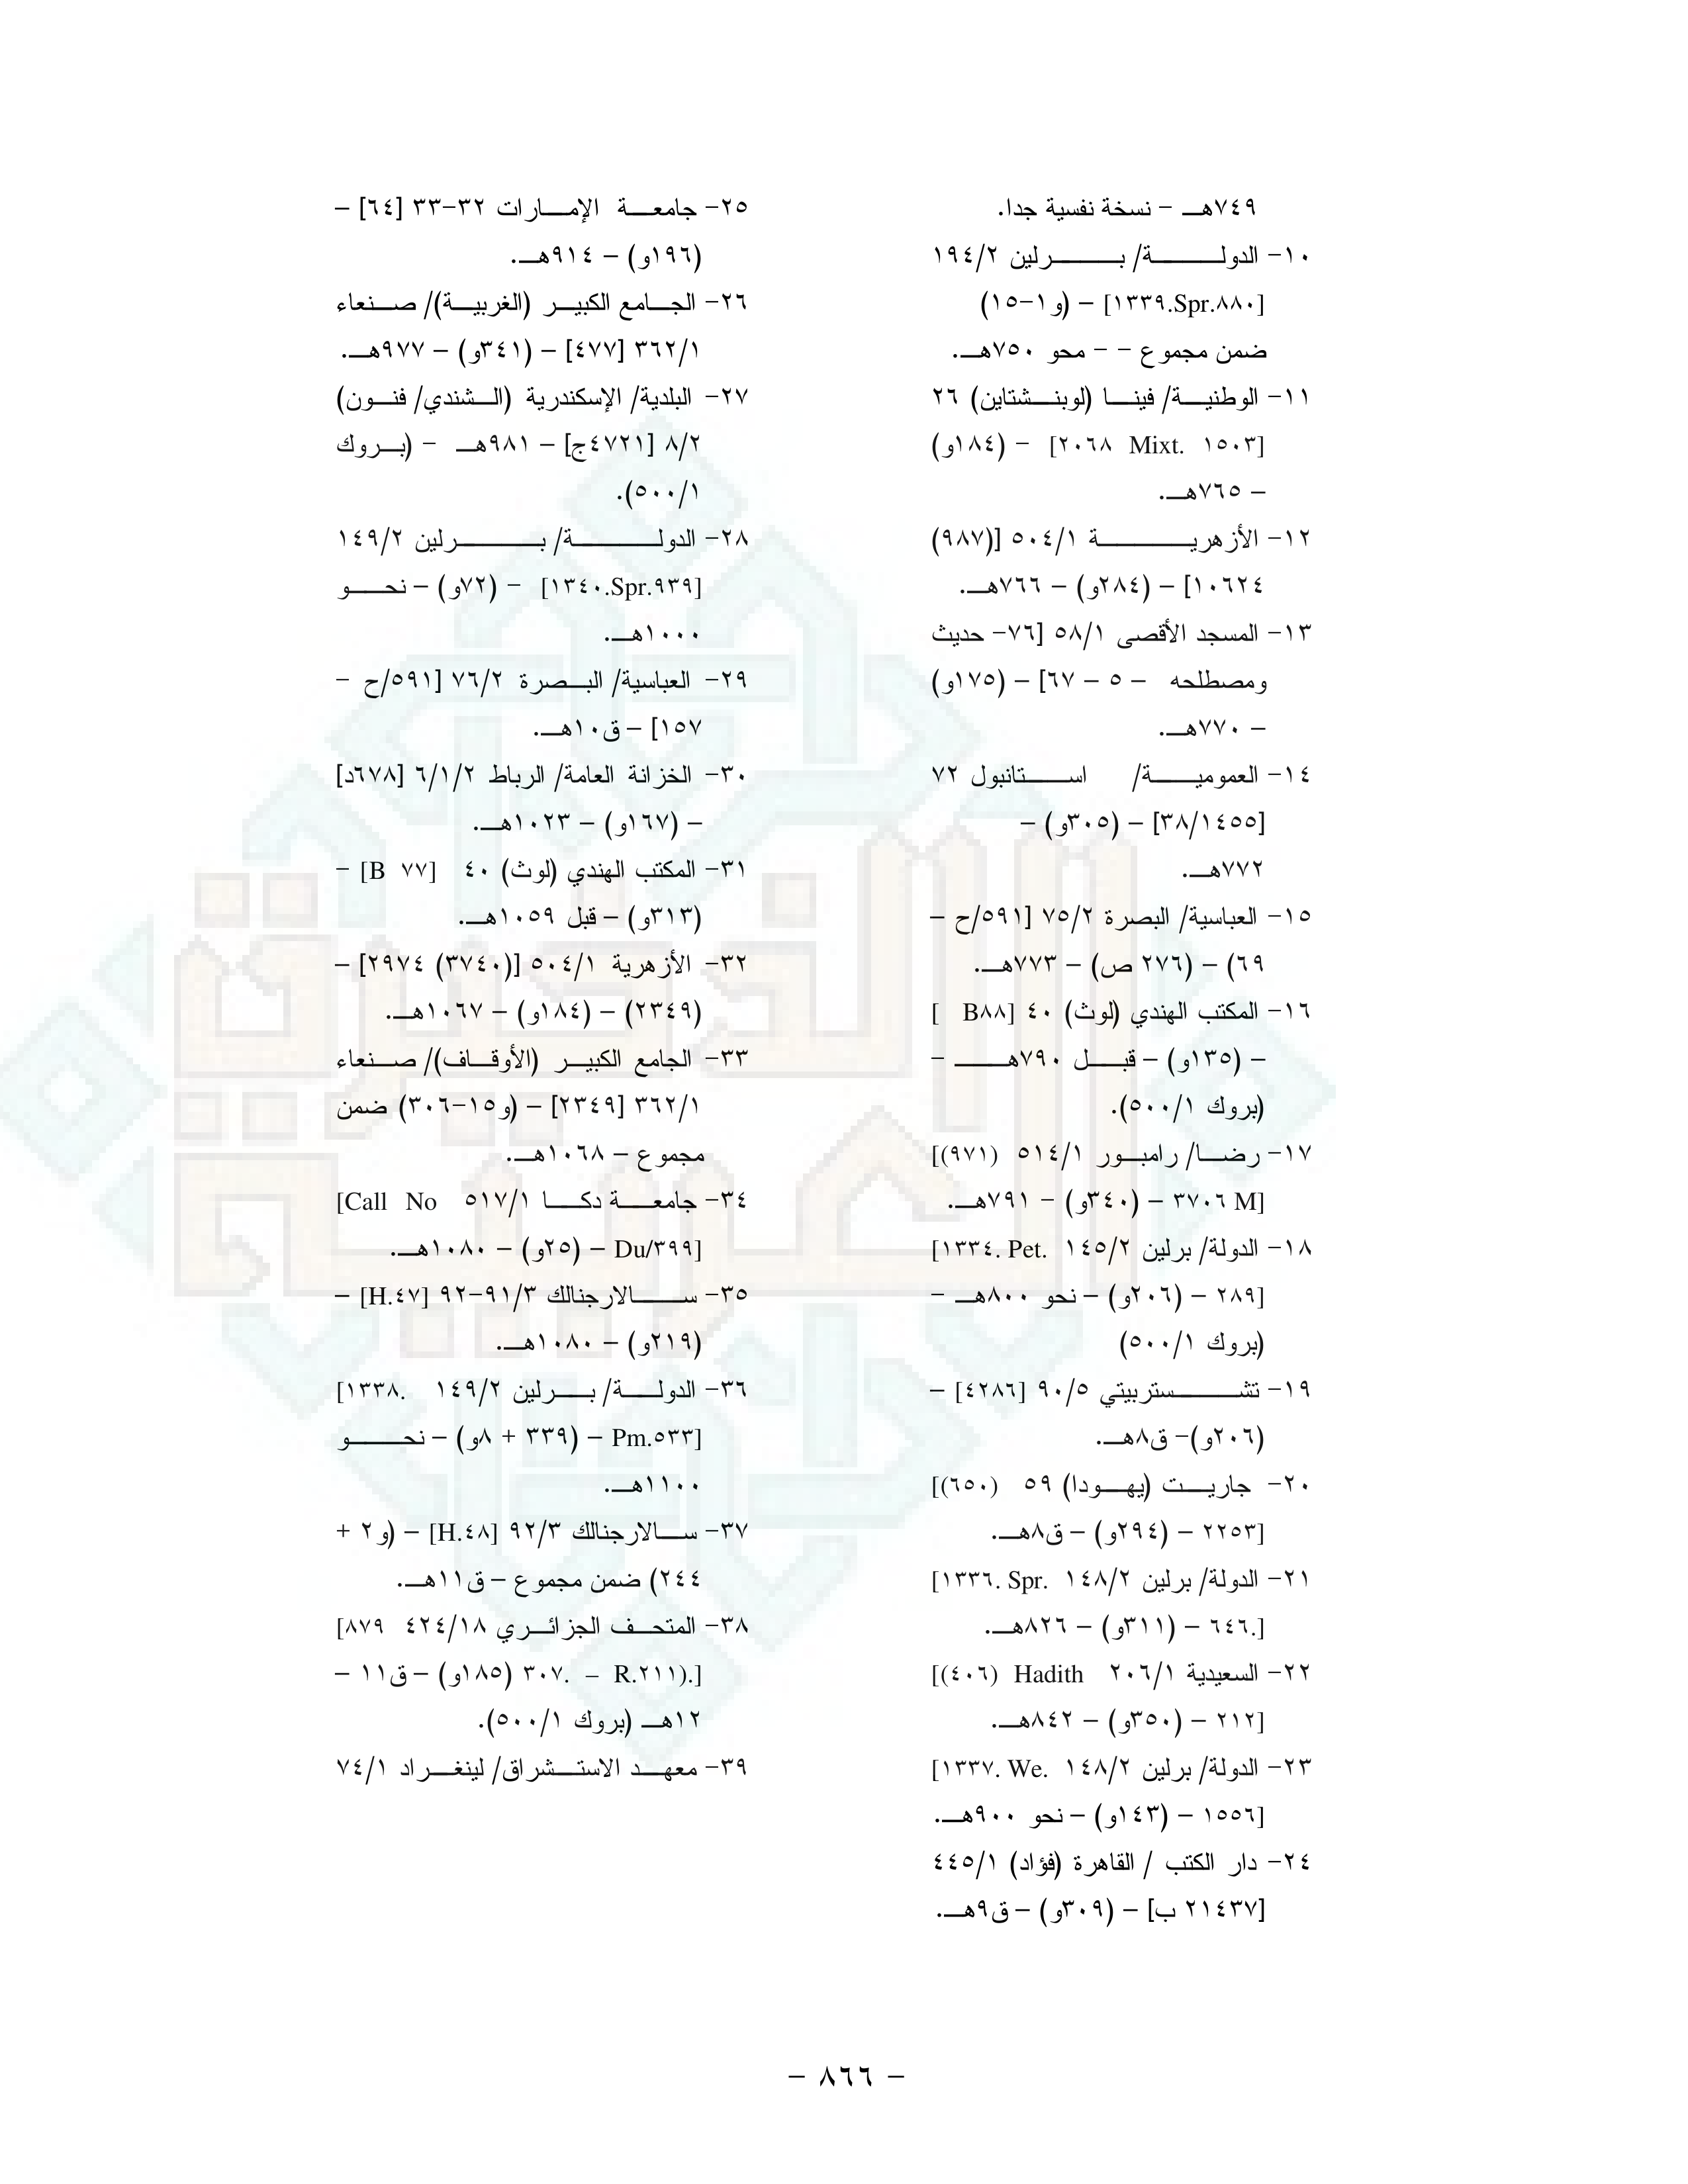 ٧٤٩هـ – نسخة نفسية جدا.
١٠– الدولة/ برلين ١٩٤/٢
[١٣٣٩.Spr.٨٨٠] – (و١–١٥)
ضمن مجموع – – محو ٧٥٠هـ.
١١– الوطنية/ فينا (لوبنشتاين) ٢٦
[٢٠٦٨ Mixt. ١٥٠٣] – (١٨٤و)
– ٧٦٥هـ.
١٢– الأزهرية ٥٠٤/١ [(٩٨٧)
١٠٦٢٤] – (٢٨٤و) – ٧٦٦هـ.
١٣– المسجد الأقصى ٥٨/١ [٧٦– حديث
ومصطلحه – ٥ – ٦٧] – (١٧٥و)
– ٧٧٠هـ.
١٤– العمومية/ استانبول ٧٢
[٣٨/١٤٥٥] – (٣٠٥و) –
٧٧٢هـ.
١٥– العباسية/ البصرة ٧٥/٢ [٥٩١/ح –
٦٩) – (٢٧٦ ص) – ٧٧٣هـ.
١٦– المكتب الهندي (لوث) ٤٠ [B٨٨ ]
– (١٣٥و) – قبل ٧٩٠هـ –
(بروك ٥٠٠/١).
١٧– رضا/ رامبور ٥١٤/١ [(٩٧١)
٣٧٠٦ M] – (٣٤٠و) – ٧٩١هـ.
١٨– الدولة/ برلين ١٤٥/٢ [١٣٣٤. Pet.
٢٨٩] – (٢٠٦و) – نحو ٨٠٠هـ –
(بروك ٥٠٠/١)
١٩– تشستربيتي ٩٠/٥ [٤٢٨٦] –
(٢٠٦و)– ق٨هـ.
٢٠– جاريت (يهودا) ٥٩ [(٦٥٠)
٢٢٥٣] – (٢٩٤و) – ق٨هـ.
٢١– الدولة/ برلين ١٤٨/٢ [١٣٣٦. Spr.
٦٤٦.] – (٣١١و) – ٨٢٦هـ.
٢٢– السعيدية ٢٠٦/١ [(٤٠٦) Hadith
٢١٢] – (٣٥٠و) – ٨٤٢هـ.
٢٣– الدولة/ برلين ١٤٨/٢ [١٣٣٧. We.
١٥٥٦] – (١٤٣و) – نحو ٩٠٠هـ.
٢٤– دار الكتب / القاهرة (فؤاد) ٤٤٥/١
[٢١٤٣٧ ب] – (٣٠٩و) – ق٩هـ.
٢٥– جامعة الإمارات ٣٢–٣٣ [٦٤] –
(١٩٦و) – ٩١٤هـ.
٢٦– الجامع الكبير (الغربية)/ صنعاء
٣٦٢/١ [٤٧٧] – (٣٤١و) – ٩٧٧هـ.
٢٧– البلدية/ الإسكندرية (الشندي/ فنون)
٨/٢ [٤٧٢١ج] – ٩٨١هـ – (بروك
٥٠٠/١).
٢٨– الدولة/ برلين ١٤٩/٢
[١٣٤٠.Spr.٩٣٩] – (٧٢و) – نحو
١٠٠٠هـ.
٢٩– العباسية/ البصرة ٧٦/٢ [٥٩١/ح –
١٥٧] – ق١٠هـ.
٣٠– الخزانة العامة/ الرباط ٦/١/٢ [٦٧٨د]
– (١٦٧و) – ١٠٢٣هـ.
٣١– المكتب الهندي (لوث) ٤٠ [B ٧٧] –
(٣١٣و) – قبل ١٠٥٩هـ.
٣٢– الأزهرية ٥٠٤/١ [(٣٧٤٠) ٢٩٧٤] –
(٢٣٤٩) – (١٨٤و) – ١٠٦٧هـ.
٣٣– الجامع الكبير (الأوقاف)/ صنعاء
٣٦٢/١ [٢٣٤٩] – (و١٥–٣٠٦) ضمن
مجموع – ١٠٦٨هـ.
٣٤– جامعة دكا ٥١٧/١ [Call No
Du/٣٩٩] – (٢٥و) – ١٠٨٠هـ.
٣٥– سالارجنالك ٩١/٣–٩٢ [H.٤٧] –
(٢١٩و) – ١٠٨٠هـ.
٣٦– الدولة/ برلين ١٤٩/٢ [١٣٣٨.
Pm.٥٣٣] – (٣٣٩ + ٨و) – نحو
١١٠٠هـ.
٣٧– سالارجنالك ٩٢/٣ [H.٤٨] – (و٢ +
٢٤٤) ضمن مجموع – ق١١هـ.
٣٨– المتحف الجزائري ٤٢٤/١٨ [٨٧٩
[.(R.٢١١ – .٣٠٧ (١٨٥و) – ق١١ –
١٢هـ (بروك ٥٠٠/١).
٣٩– معهد الاستشراق/ لينغراد ٧٤/١
– ٨٦٦ –